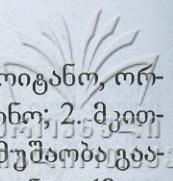 ოიტანო, ორ-
ენო; 2. მკით-
მუშაობა გაა-